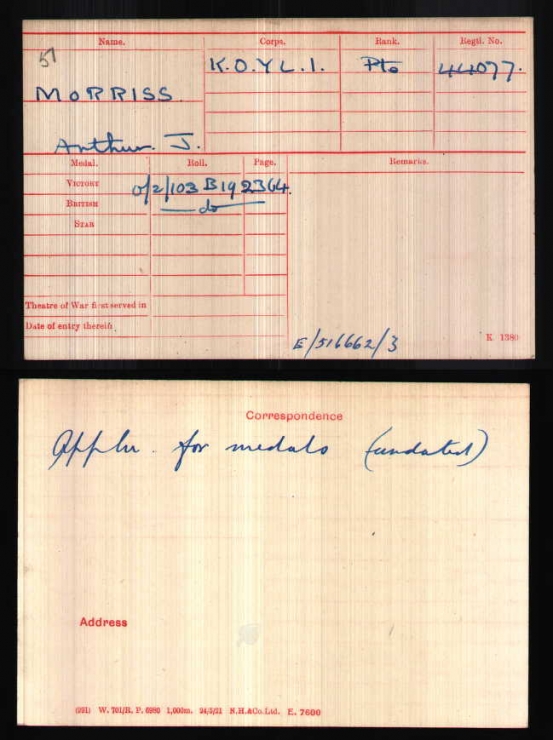 Name. Corps. Rank. Regtl. No.
51 K.O.Y.L.I. Pte 44077.
MORRISS.
Arthur. J.
Medal. Roll. Page. Remarks.
VICTORY O/2/103 B19 2364.
BRITISH do
STAR
Theatre of War first served in
Date of entry therein
E/516662/3 K 1380
Correspondence
Appln. for medals (undated)
Address
(291) W. 701/R. P. 6980 1,000m. 24/5/21 N.H.&Co.Ltd. E. 7600